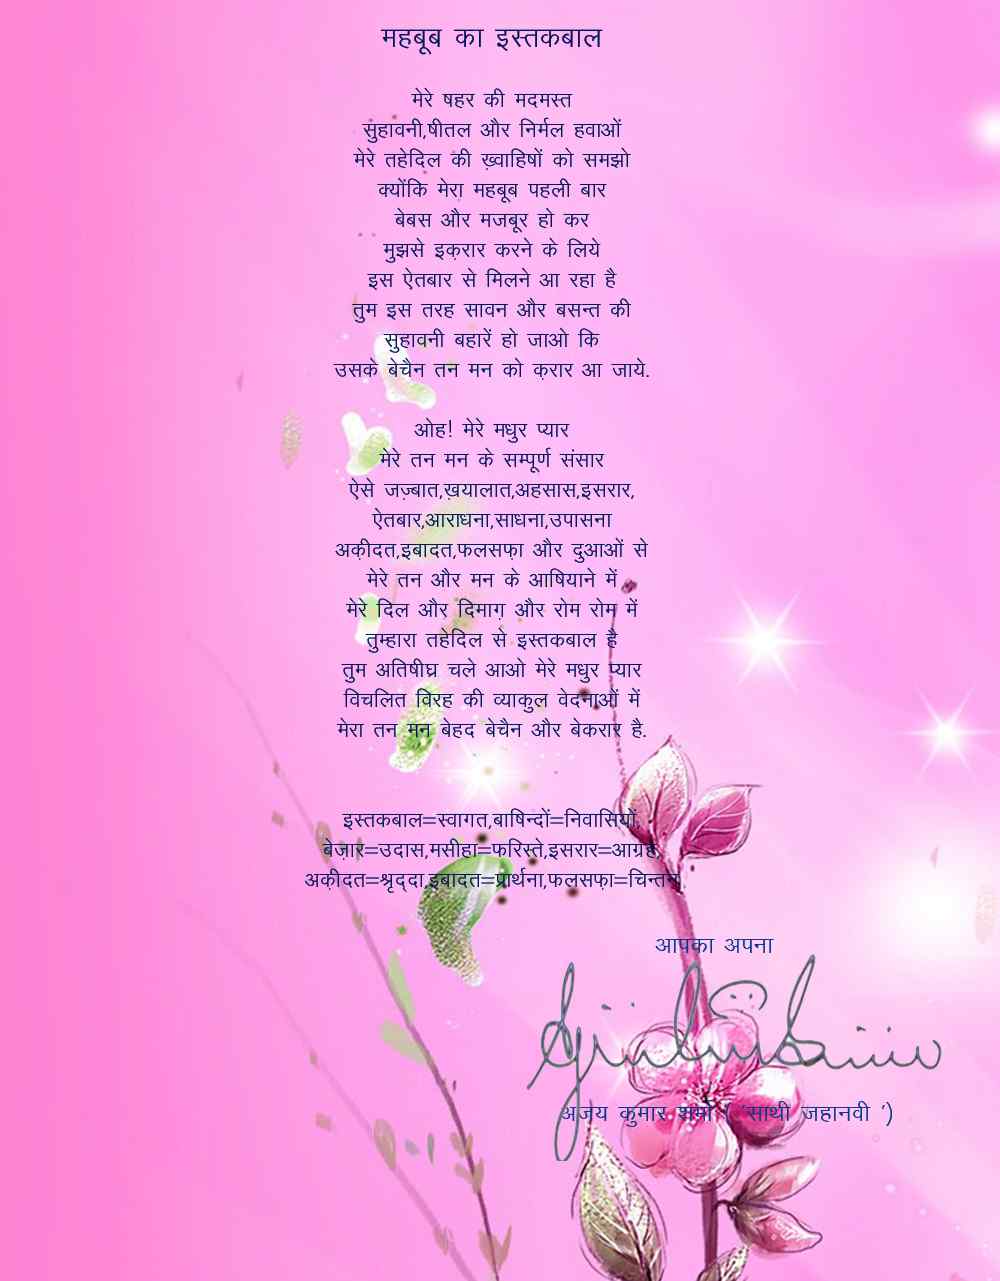 महबूब का इस्तकबाल
मेरे षहर की मदमस्त
सुहावनी,षीतल और निर्मल हवाओं
मेरे तहेदिल की ख़्वाहिषों को समझो
क्योंकि मेरा महबूब पहली बार
बेबस और मजबूर हो कर
मुझसे इक़रार करने के लिये
इस ऐतबार से मिलने आ रहा है
तुम इस तरह सावन और बसन्त की
सुहावनी बहारें हो जाओ कि
उसके बेचैन तन मन को क़रार आ जाये.
ओह! मेरे मधुर प्यार
मेरे तन मन के सम्पूर्ण संसार
ऐसे जज़्बात,ख़यालात,अहसास,इसरार,
ऐतबार,आराधना,साधना,उपासना
अक़ीदत,इबादत,फलसफ़ा और दुआओं से
मेरे तन और मन के आषियाने में
मेरे दिल और दिमाग़ और रोम रोम में
तुम्हारा तहेदिल से इस्तकबाल है
तुम अतिषीघ्र चले आओ मेरे मधुर प्यार
विचलित विरह की व्याकुल वेदनाओं में
मेरा तन मन बेहद बेचैन और बेकरार है.
इस्तकबाल=स्वागत,बाषिन्दों=निवासियों,
बेज़ार=उदास,मसीहा=फरिस्ते,इसरार=आग्रह,
अक़ीदत=श्रृद्दा,इबादत=प्रार्थना,फलसफ़ा=चिन्तन
आपका अपना
अजय कुमार शर्मा ( 'साथी जहानवी ')